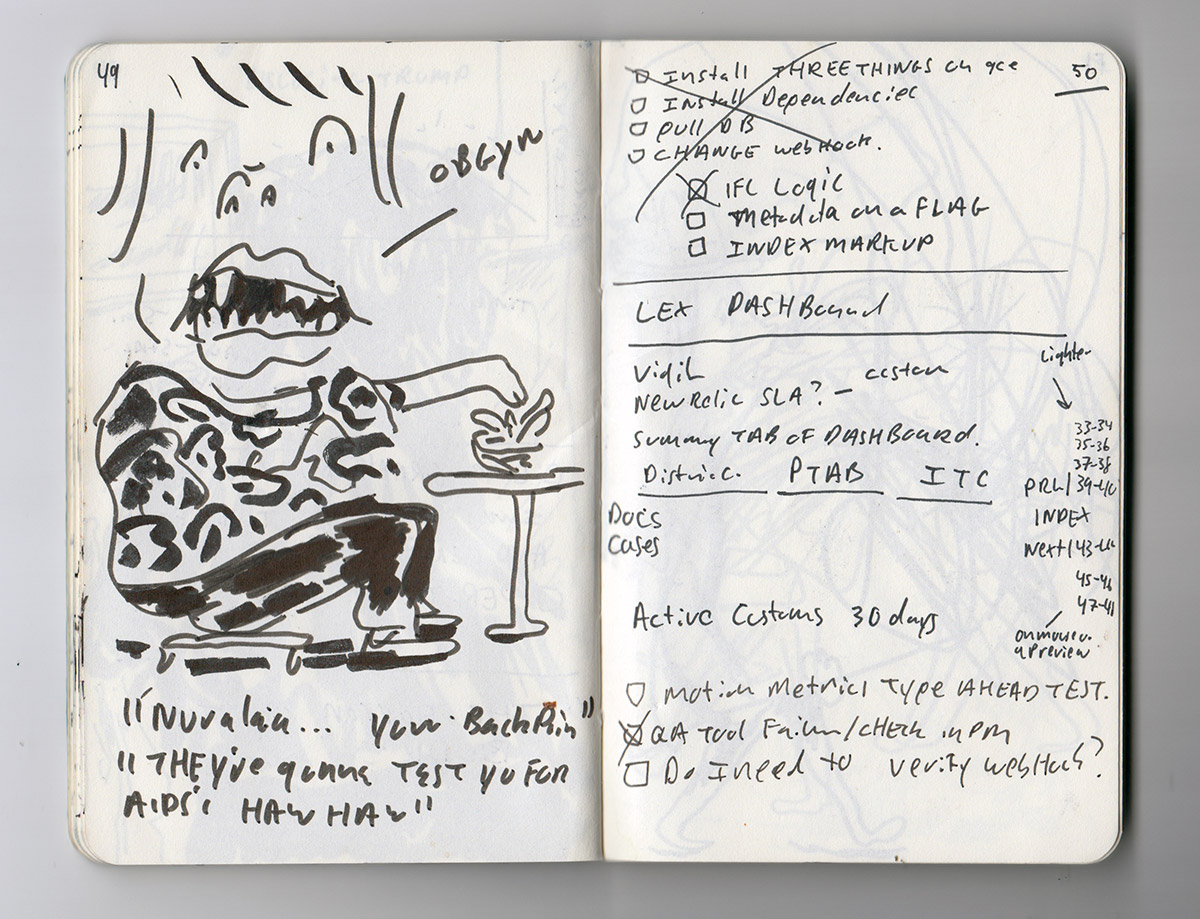 49
OBGYN
"Nuvalaia... your Back Pain"
"THEY're gonna TEST yo FOR
AIDS! HAW HAW"
50
Install THREETHINGS on qce
Install Dependencies
pull DB
CHANGE webHook.
IFC Logic
Metadata on a FLAG
INDEX MARKUP
LEX DASHBoard
Lighter
Vidih
custom
New Relic SLA? -
33-34
Summary TAB OF DASHBoard.
35-36
37-38
District. PTAB ITC
PRL/39-40
Docs
INDEX
Cases
Next/43-44
45-46
47-48
Active Customs 30 days
on mouse o.
a Preview
Motion Metrics Type AHEAD TEST.
QA Tool Failure/CHECK in PM
Do I need to verify webHook?